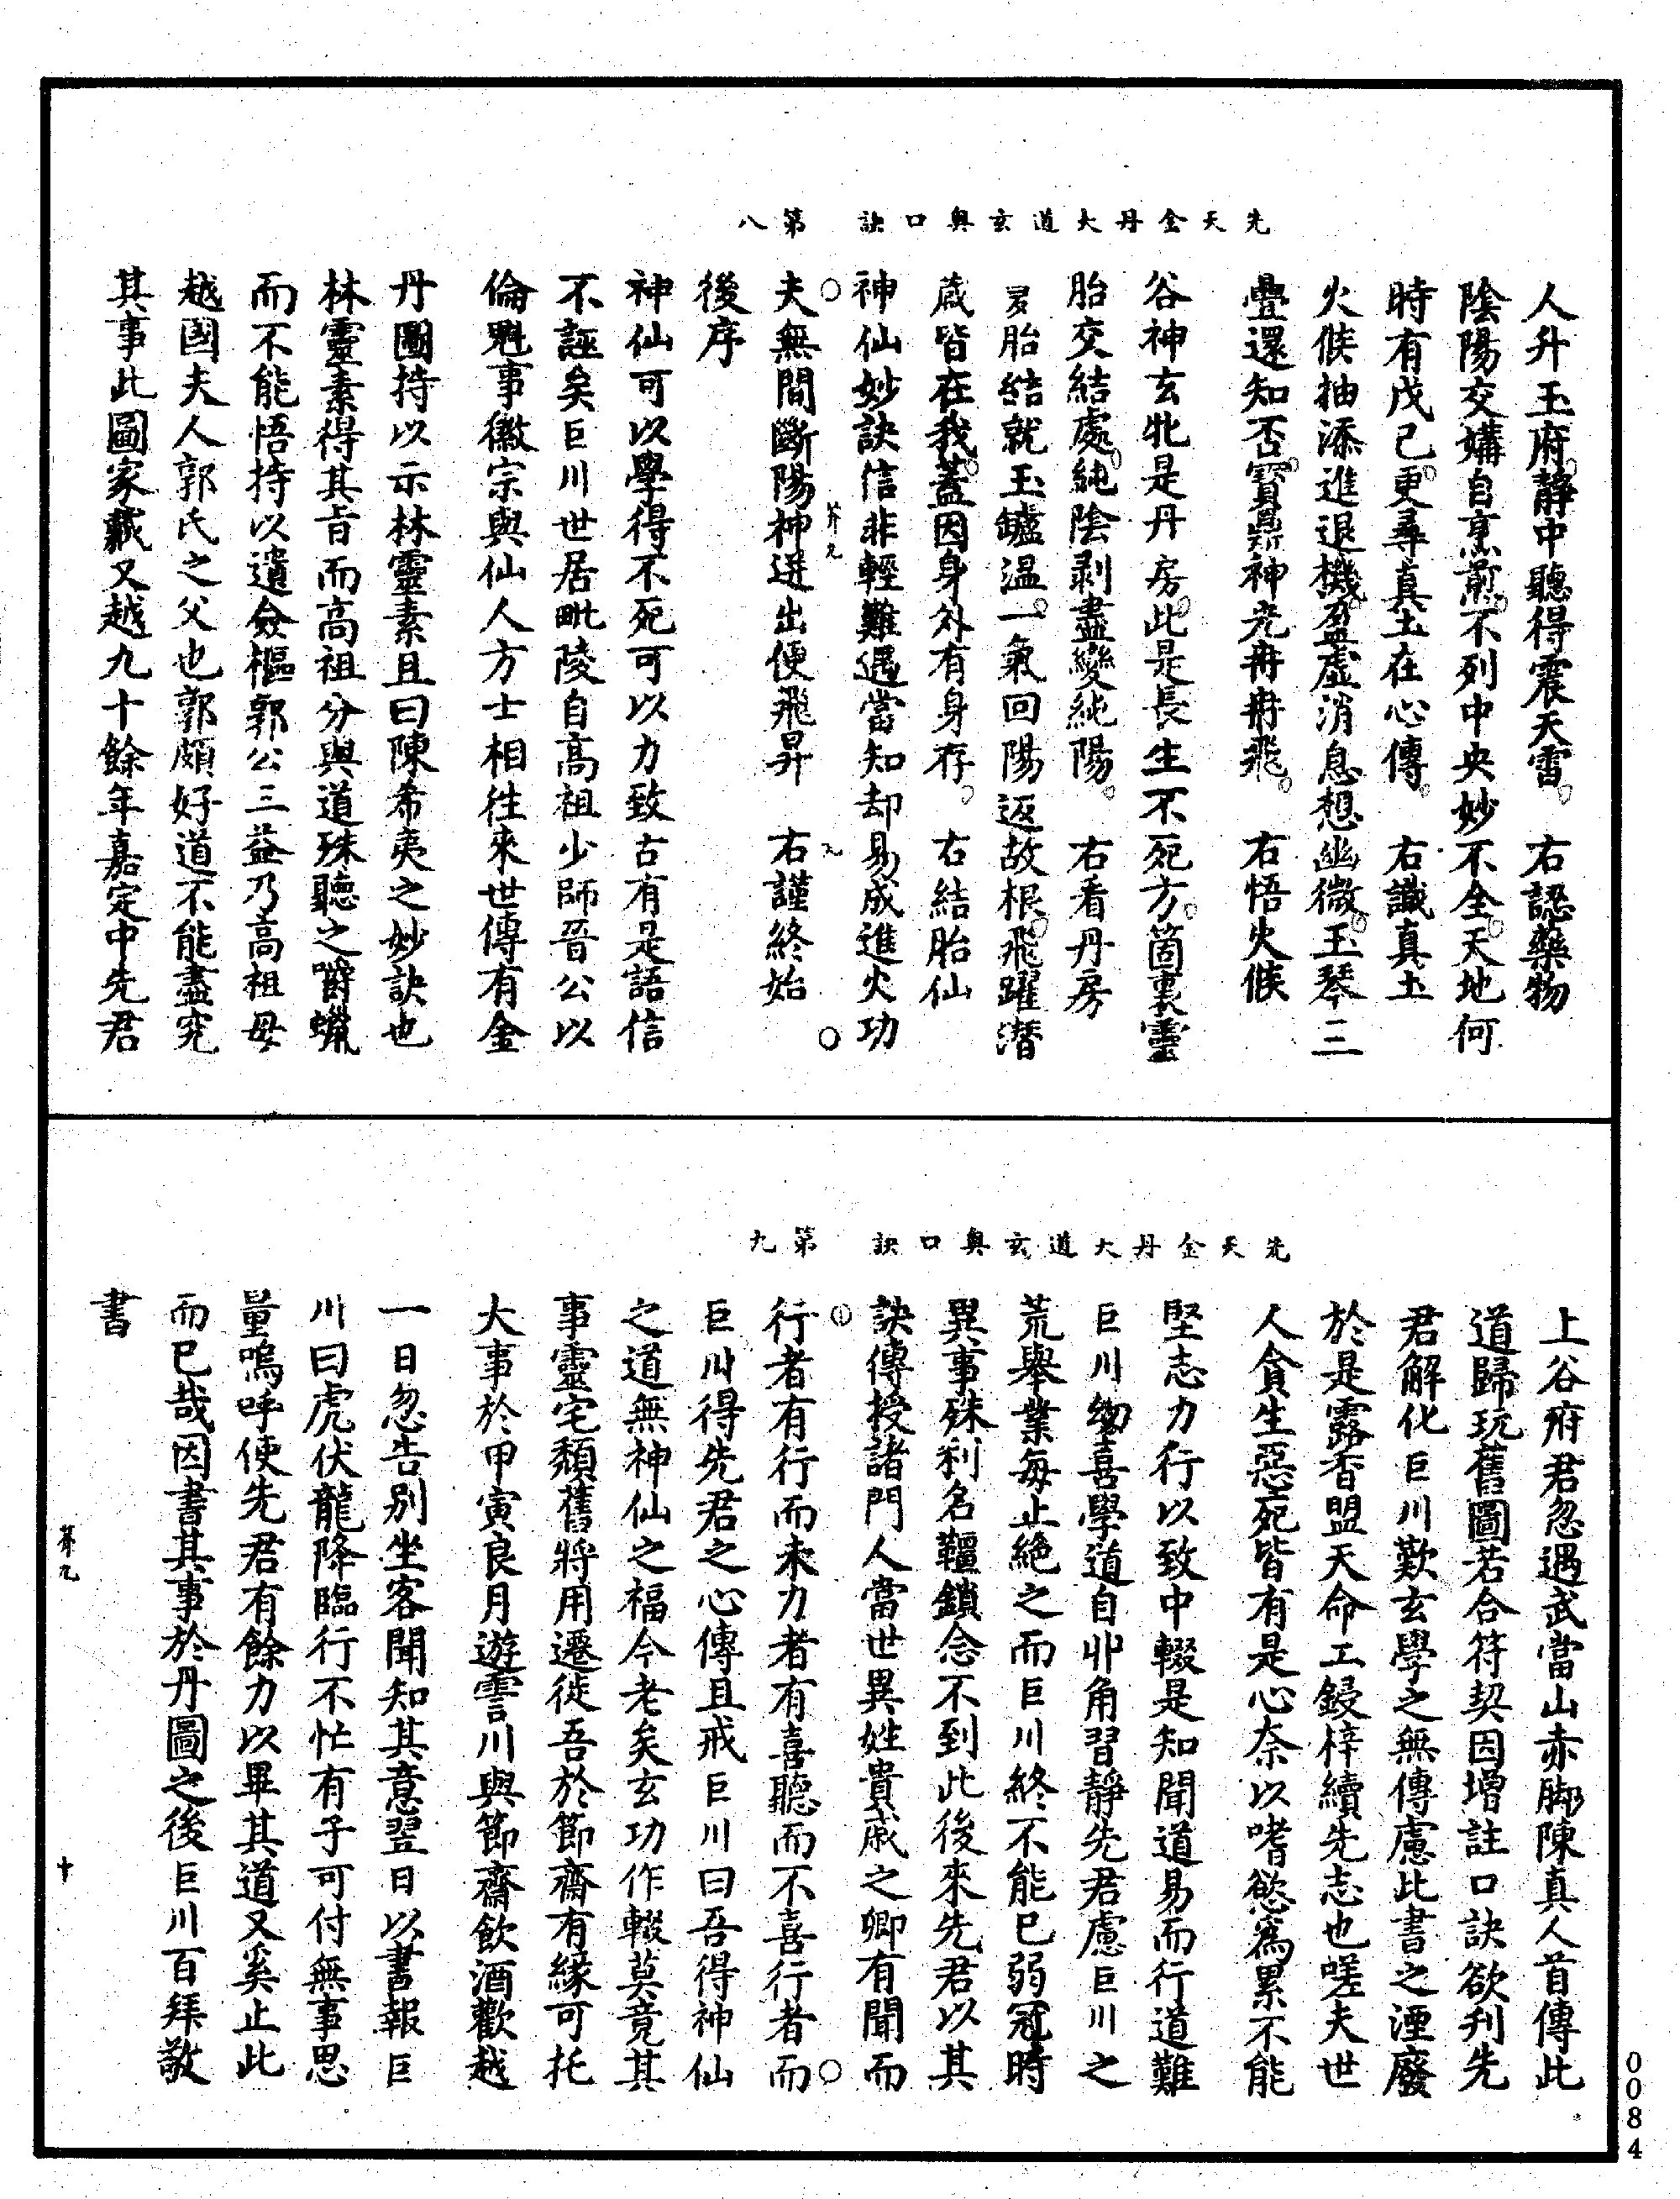 先天金丹大道玄奧口訣　第八
人升玉府靜中聽得震天雷　右認藥物
陰陽交媾自烹煎不列中央妙不全天地何
時有戊己更尋真土在心傳　右識真土
火候抽添進退機盈虛消息想幽微玉琴三
疊還知否寶鼎神光冉冉飛　右悟火候
谷神玄牝是丹房此是長生不死方箇裏靈
胎交結處純陰剥盡變純陽　右看丹房
胎結就玉鑪温一氣回陽返故根飛躍潛
藏皆在我蓋因身外有身存　右結胎仙
神仙妙訣信非輕難遇當知却易成進火功
第九　九
夫無間斷陽神迸出便飛昇　右謹終始
後序
神仙可以學得不死可以力致古有是語信
不誣矣巨川世居毗陵自高祖少師晉公以
倫魁事徽宗與仙人方士相往來世傳有金
丹圖持以示林靈素且曰陳希夷之妙訣也
林靈素得其旨而高祖分與道殊聽之嚼蠟
而不能悟持以遺僉樞郭公三益乃高祖母
越國夫人郭氏之父也郭頗好道不能盡究
其事此圖家藏又越九十餘年嘉定中先君
先天金丹大道玄奧口訣　第九
上谷府君忽遇武當山赤脚陳真人首傳此
道歸玩舊圖若合符契因增註口訣欲刋先
君解化巨川歎玄學之無傳慮此書之湮廢
於是露香盟天命工鋟梓續先志也嗟夫世
人貪生惡死皆有是心奈以嗜慾為累不能
堅志力行以致中輟是知聞道易而行道難
巨川幼喜學道自丱角習靜先君慮巨川之
荒舉業每止絕之而巨川終不能已弱冠時
異事殊利名韁鎖念不到此後來先君以其
訣傳授諸門人當世異姓貴戚之卿有聞而
行者有行而未力者有喜聽而不喜行者而
巨川得先君之心傳且戒巨川曰吾得神仙
之道無神仙之福今老矣玄功作輟莫竟其
事靈宅頹舊將用遷徙吾於節齋有緣可托
大事於甲寅良月遊霅川與節齋飲酒歡越
一日忽告别坐客聞知其意翌日以書報巨
川曰虎伏龍降臨行不忙有子可付無事思
量嗚呼使先君有餘力以畢其道又奚止此
而已哉因書其事於丹圖之後巨川百拜敬
書
第九　十
0084